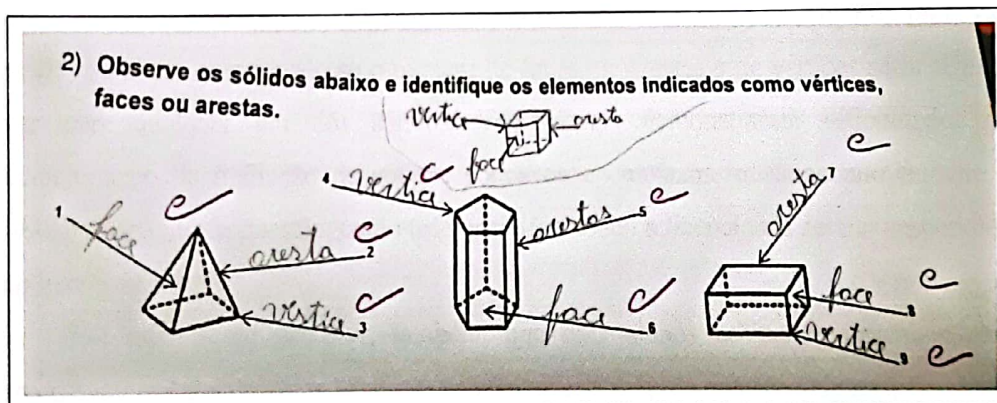 2) Observe os sólidos abaixo e identifique os elementos indicados como vértices,
faces ou arestas.
vertice
aresta
face
1 face C
aresta 2 C
vértice 3 C
4 vertice C
arestas 5 C
face 6 C
aresta 7 C
face 8 C
vertice 9 C